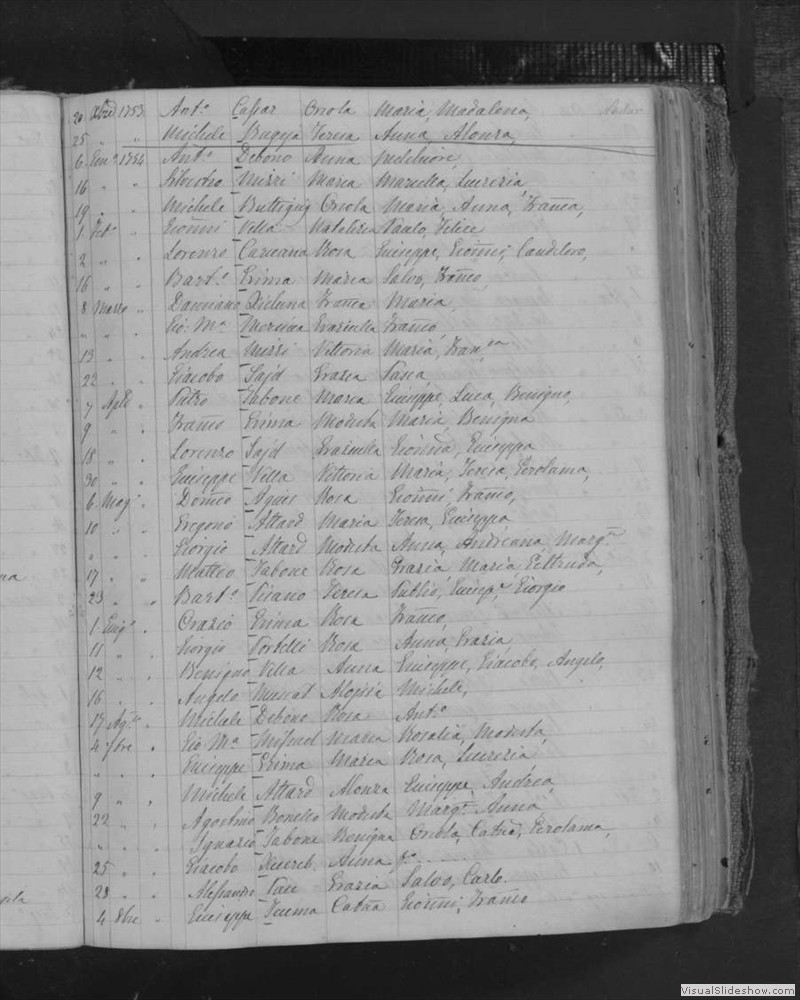 20 Xbre 1753 Ant.o Cassar Oriola Maria, Madalena,
25 " " Michele Bugeja Teresa Anna, Alonza,
6 Gen.o 1754 Ant.o Debono Anna
16 " " Silvestro Mizzi Maria Mariella, Lucrezia
19 " " Michele Buttigieg Oriola Maria, Anna, Franca,
1 Feb.o " Gioanni Vella Natalizia Paulo, Felice
2 " " Lorenzo Caruana Rosa Giuseppe, Gioanni, Candeloro,
16 " " Bart.o Grima Maria Salvo, Franco,
8 Marzo " Damiano Xicluna Franca Maria,
" " " Gio: M.a Graziulla Franco,
13 " " Andrea Mizzi Vittoria Maria, Fran.ca
22 " " Giacobo Sajd Grazia Pasca,
7 Aple " Pietro Tabone Maria Giuseppe, Luca, Benigno,
9 " " Franco Grima Modesta Maria, Benigna
18 " " Lorenzo Sajd Graziulla Gioanna, Giuseppa
30 " " Giuseppe Vella Vittoria Maria, Teresa, Gerolama,
6 Mag.o " Domco Agius Rosa Gioanni, Franco,
10 " " Gregorio Attard Maria Teresa, Giuseppa,
" " " Giorgio Attard Modesta Anna, Andreana, Marg.ta
17 " " Matteo Tabone Rosa Grazia Maria, Geltruda,
23 " " Bart.o Pisano Teresa Publio, Giusep.e, Giorgio
1 Giug.o " Orazio Grima Rosa Franco,
11 " " Giorgio Portelli Rosa Anna, Grazia
12 " " Benigno Vella Anna Giuseppe, Giacobo, Angelo,
16 " " Angelo Muscat Aloisia Michele,
17 Ag.to " Michele Debono Rosa Ant.o
4 7bre " Gio M.a Mifsud Maria Rosalia, Modesta,
" " " Giuseppe Grima Maria Rosa, Lucrezia,
9 " " Michele Attard Alonza Giuseppe, Andrea,
22 " " Agostino Bonello Modesta Marg.ta Anna
" " " Ignazio Tabone Benigna Oriola, Catna, Gerolama,
25 " " Giacobo Xuereb Anna,
28 " " Alessandro Pace Grazia Salvo, Carlo.
4 8bre " Giuseppe Teuma Catna Gioanni, Franco
VisualSlideshow.com